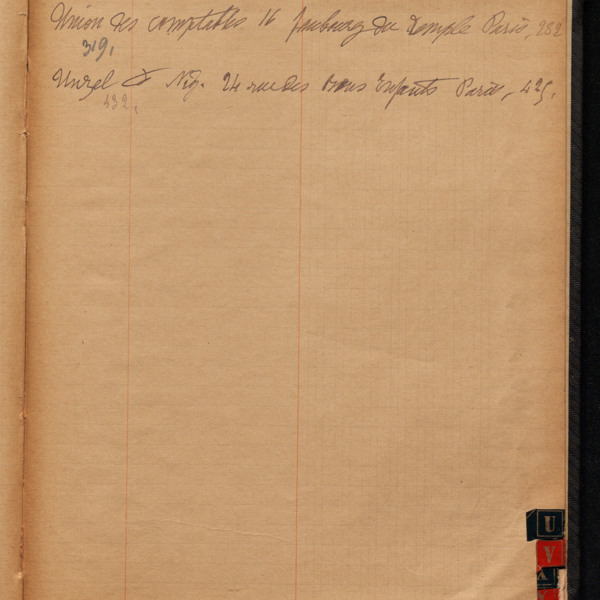 Union des comptables 16 faubourg du Temple Paris, 282
319,
Unzel & Nig. 24 rue des Bons Enfants Paris, 425.
432,
U
V